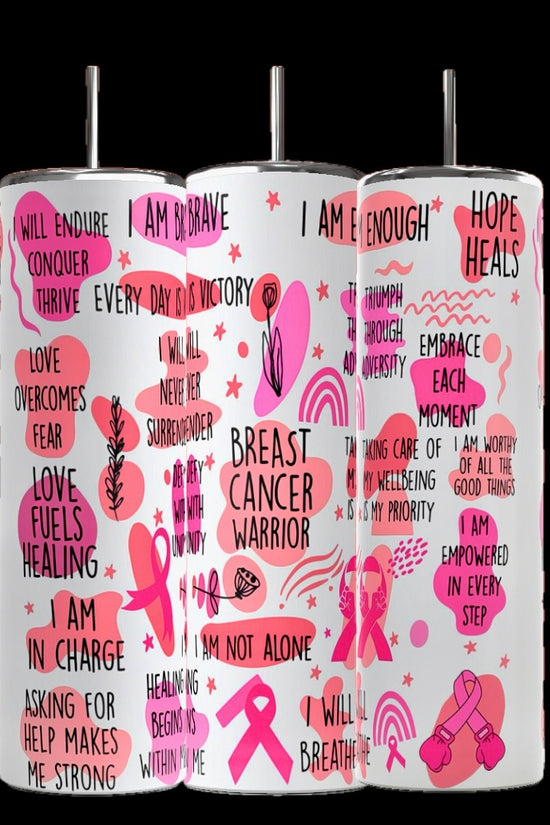 I WILL ENDURE
CONQUER
THRIVE
I AM BRAVE
EVERY DAY IS VICTORY
LOVE
OVERCOMES
FEAR
I WILL
NEVER
SURRENDER
LOVE
FUELS
HEALING
DEFY
WITH
I AM
IN CHARGE
ASKING FOR
HELP MAKES
ME STRONG
HEALING
BEGINS
WITHIN ME
BREAST
CANCER
WARRIOR
I AM NOT ALONE
I AM ENOUGH
TRIUMPH
THROUGH
ADVERSITY
TAKING CARE OF
MY WELLBEING
IS MY PRIORITY
I WILL
BREATHE
HOPE
HEALS
EMBRACE
EACH
MOMENT
I AM WORTHY
OF ALL THE
GOOD THINGS
I AM
EMPOWERED
IN EVERY
STEP